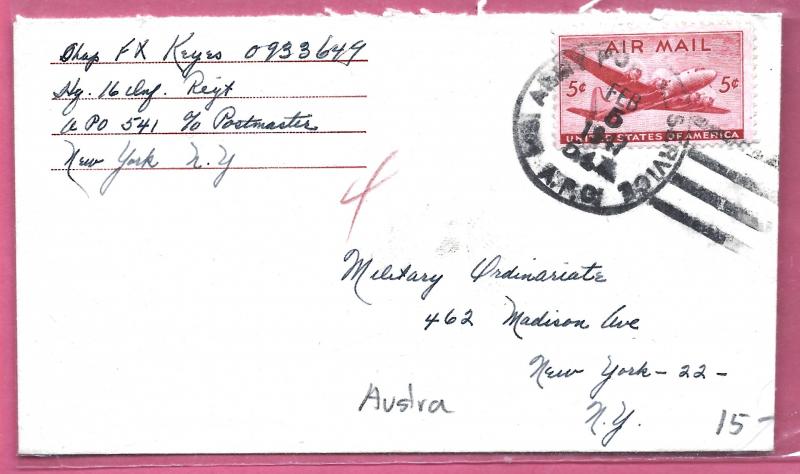 Chap FX Keyes 0933649
Hq. 16 Inf. Regt
APO 541 c/o Postmaster
New York N.Y
AIR MAIL
5¢ 5¢
UNITED STATES OF AMERICA
ARMY SERVICE
FEB
5
A.P.O.
4
Military Ordinariate
462 Madison Ave
New York - 22 -
N.Y.
Austra
15-